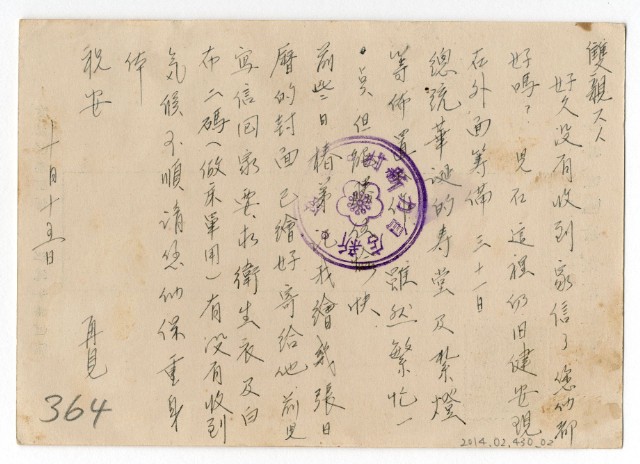 雙親大人
好久沒有收到家信了您們都
好嗎?兒在這裡仍旧健安現
在外面籌備三十一日
總統華誕的寿堂及紮燈
等佈置 雖然繁忙一
点但 快
前些日椿弟 我繪幾張日
曆的封面已繪好寄給他前兒
寫信回家要扒衛生衣及白
布二碼(做床單用)有沒有收到
気候不順請您们保重身
体
祝安
再見
十月十五日
新店
364
2014.02.450.02